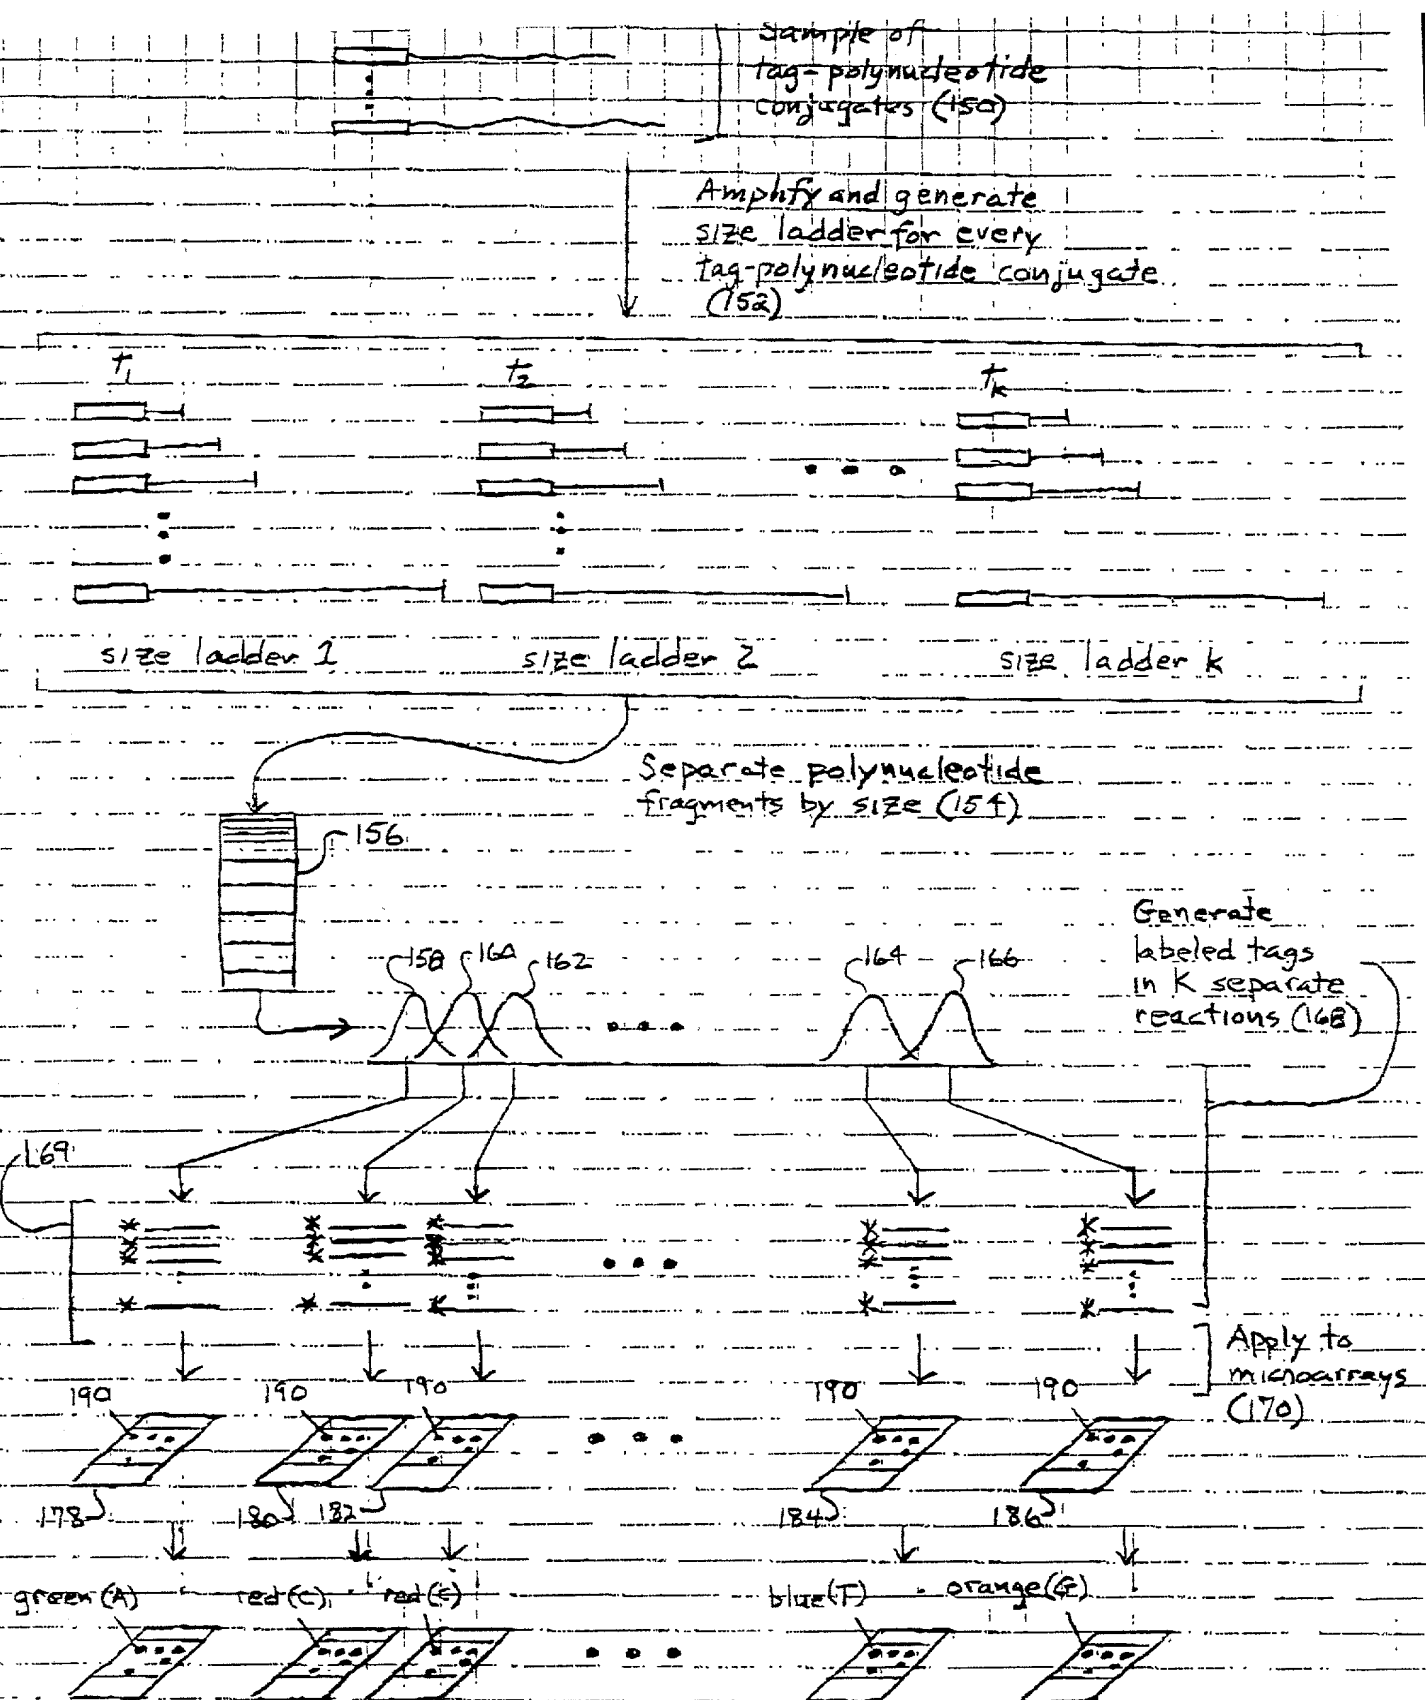 Sample of
tag-polynucleotide
conjugates (150)
Amplify and generate
size ladder for every
tag-polynucleotide conjugate
(152)
t1
t2
tk
size ladder 1
size ladder 2
size ladder k
Separate polynucleotide
fragments by size (154)
156
Generate
labeled tags
in K separate
reactions (168)
158
160
162
164
166
169
Apply to
microarrays
(170)
190
190
190
190
190
178
180
182
184
186
green (A)
red (C)
red (C)
blue (T)
orange (G)